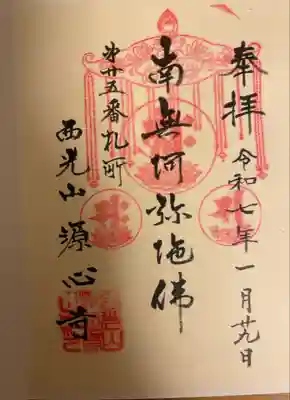 奉拝 令和七年一月廿九日
南無阿弥陀佛
第廿五番札所
西光山源心寺